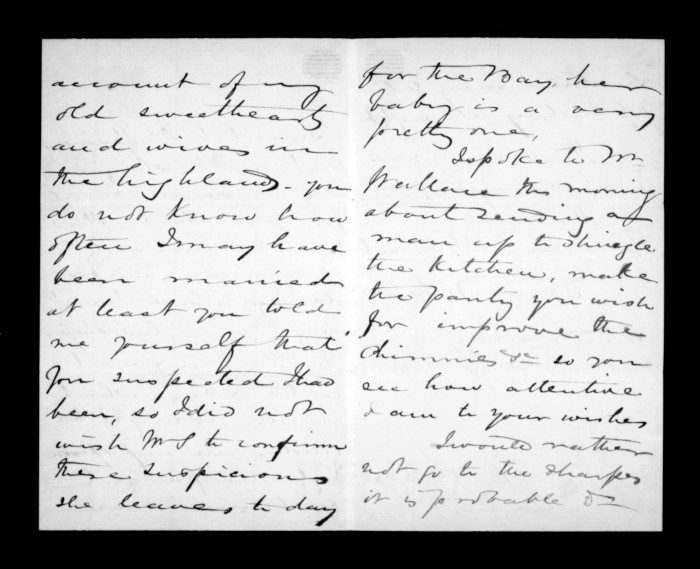 account of my
old sweethearts
and wives in
the highlands - you
do not know how
often I may have
been married
at least you told
me yourself that
you suspected I had
been, so I did not
wish Mrs S to confirm
these suspicions
she leaves to day
for the Bay, her
baby is a very
pretty one,
I spoke to Mr
Wallace this morning
about sending a
man up to shingle
the kitchen, make
the pantry you wish
for improve the
chimnies &c so you
see how attentive
I am to your wishes
I would rather
not go to the Sharpes
it is probable &c